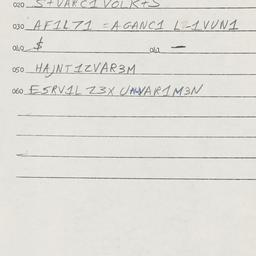 020 S+VARC1 VOLK+S
030 AF1L71 =AGANC1 L-1VUN1
040 $ 041 —
050 HAJNT1ZVAR3M
060 ESRV1L Z3X VAR1M3N